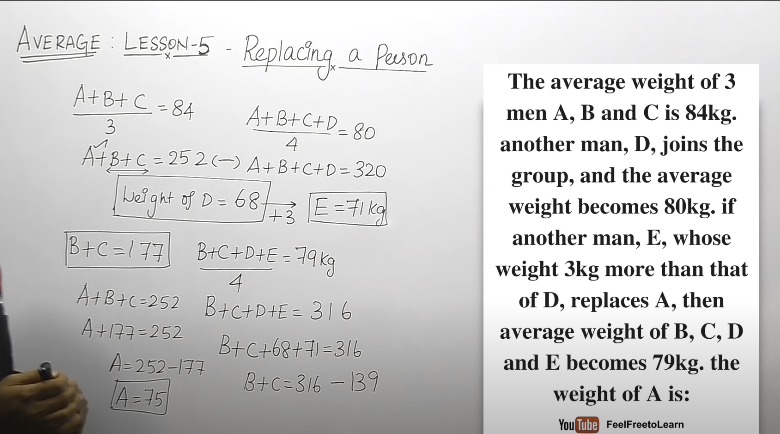 AVERAGE : LESSON-5 - Replacing a Person
A+B+C
3
=84
A+B+C+D
4
=80
A+B+C = 252 (-) A+B+C+D=320
Weight of D = 68
+3
E=71kg
B+C=177
B+C+D+E
4
=79kg
A+B+C=252
A+177=252
A=252-177
A=75
B+C+D+E= 316
B+C+68+71=316
B+C=316 - 139
The average weight of 3
men A, B and C is 84kg.
another man, D, joins the
group, and the average
weight becomes 80kg. if
another man, E, whose
weight 3kg more than that
of D, replaces A, then
average weight of B, C, D
and E becomes 79kg. the
weight of A is:
YouTube FeelFreetoLearn